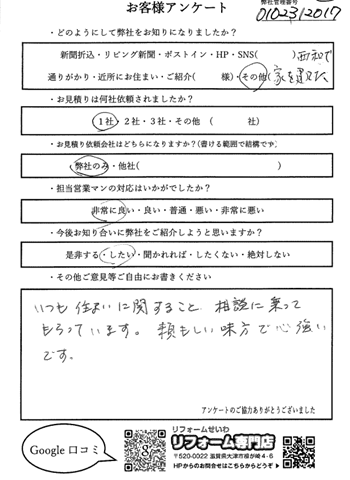 お客様アンケート
弊社管理番号
0102312017
・どのようにして弊社をお知りになりましたか？
新聞折込・リビング新聞・ポストイン・HP・SNS( )
通りがかり・近所にお住まい・ご紹介( 様)・その他(
・お見積りは何社依頼されましたか？
1社・2社・3社・その他 ( 社)
・お見積り依頼会社はどちらになりますか？(書ける範囲で結構です。)
弊社のみ・他社( )
・担当営業マンの対応はいかがでしたか？
非常に良い・良い・普通・悪い・非常に悪い
・今後お知り合いに弊社をご紹介しようと思いますか？
是非する・したい・聞かれれば・したくない・絶対しない
・その他ご意見等ご自由にお書きください
いつも住まいに関すること相談に乗って
もらっています。頼もしい味方で心強い
です。
アンケートのご協力ありがとうございました
Google 口コミ
8
リフォームせいわ
リフォーム専門店
〒520-0022 滋賀県大津市柳が崎4-6
HPからのお問合せはこちらからどうぞ▶